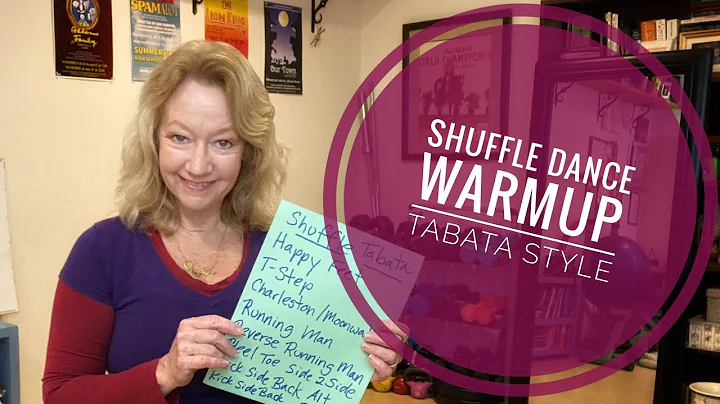 The
Addams
Family
SPAMALOT
SUMMERVI
HIGH SCHOOL
THE
LION KING
Our Town
WORLD CHAMPION
SHUFFLE DANCE
WARMUP
TABATA STYLE
Shuffle Tabata
Happy Feet
T-Step
Charleston/Moonwa
Running Man
Reverse Running Man
Heel Toe Side 2 Side
Kick Side Back Alt
Kick Side Back